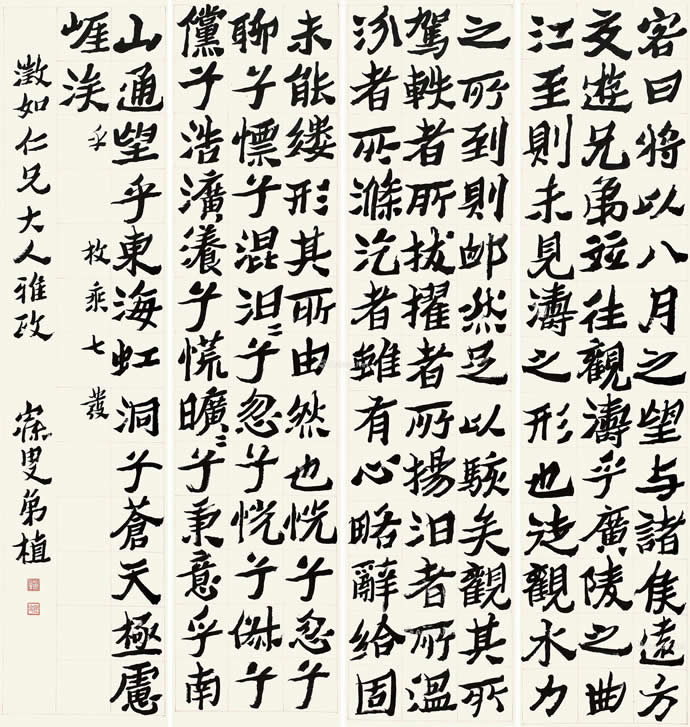 客曰將以八月之望与諸侯遠方
交遊兄弟竝往觀濤乎廣陵之曲
江至則未見濤之形也徒觀水力
之所到則卹然足以駭矣觀其所
駕軼者所拔擢者所揚汩者所温
汾者所滌汔者雖有心略辭給固
未能縷形其所由然也怳兮忽兮
聊兮慓兮混汩〻兮忽兮恍兮俶兮
儻兮浩瀇瀁兮慌曠〻兮秉意乎南
山通望乎東海虹洞兮蒼天極慮
崕涘 乎 枚乘七發
澂如仁兄大人雅政 寐叟弟植